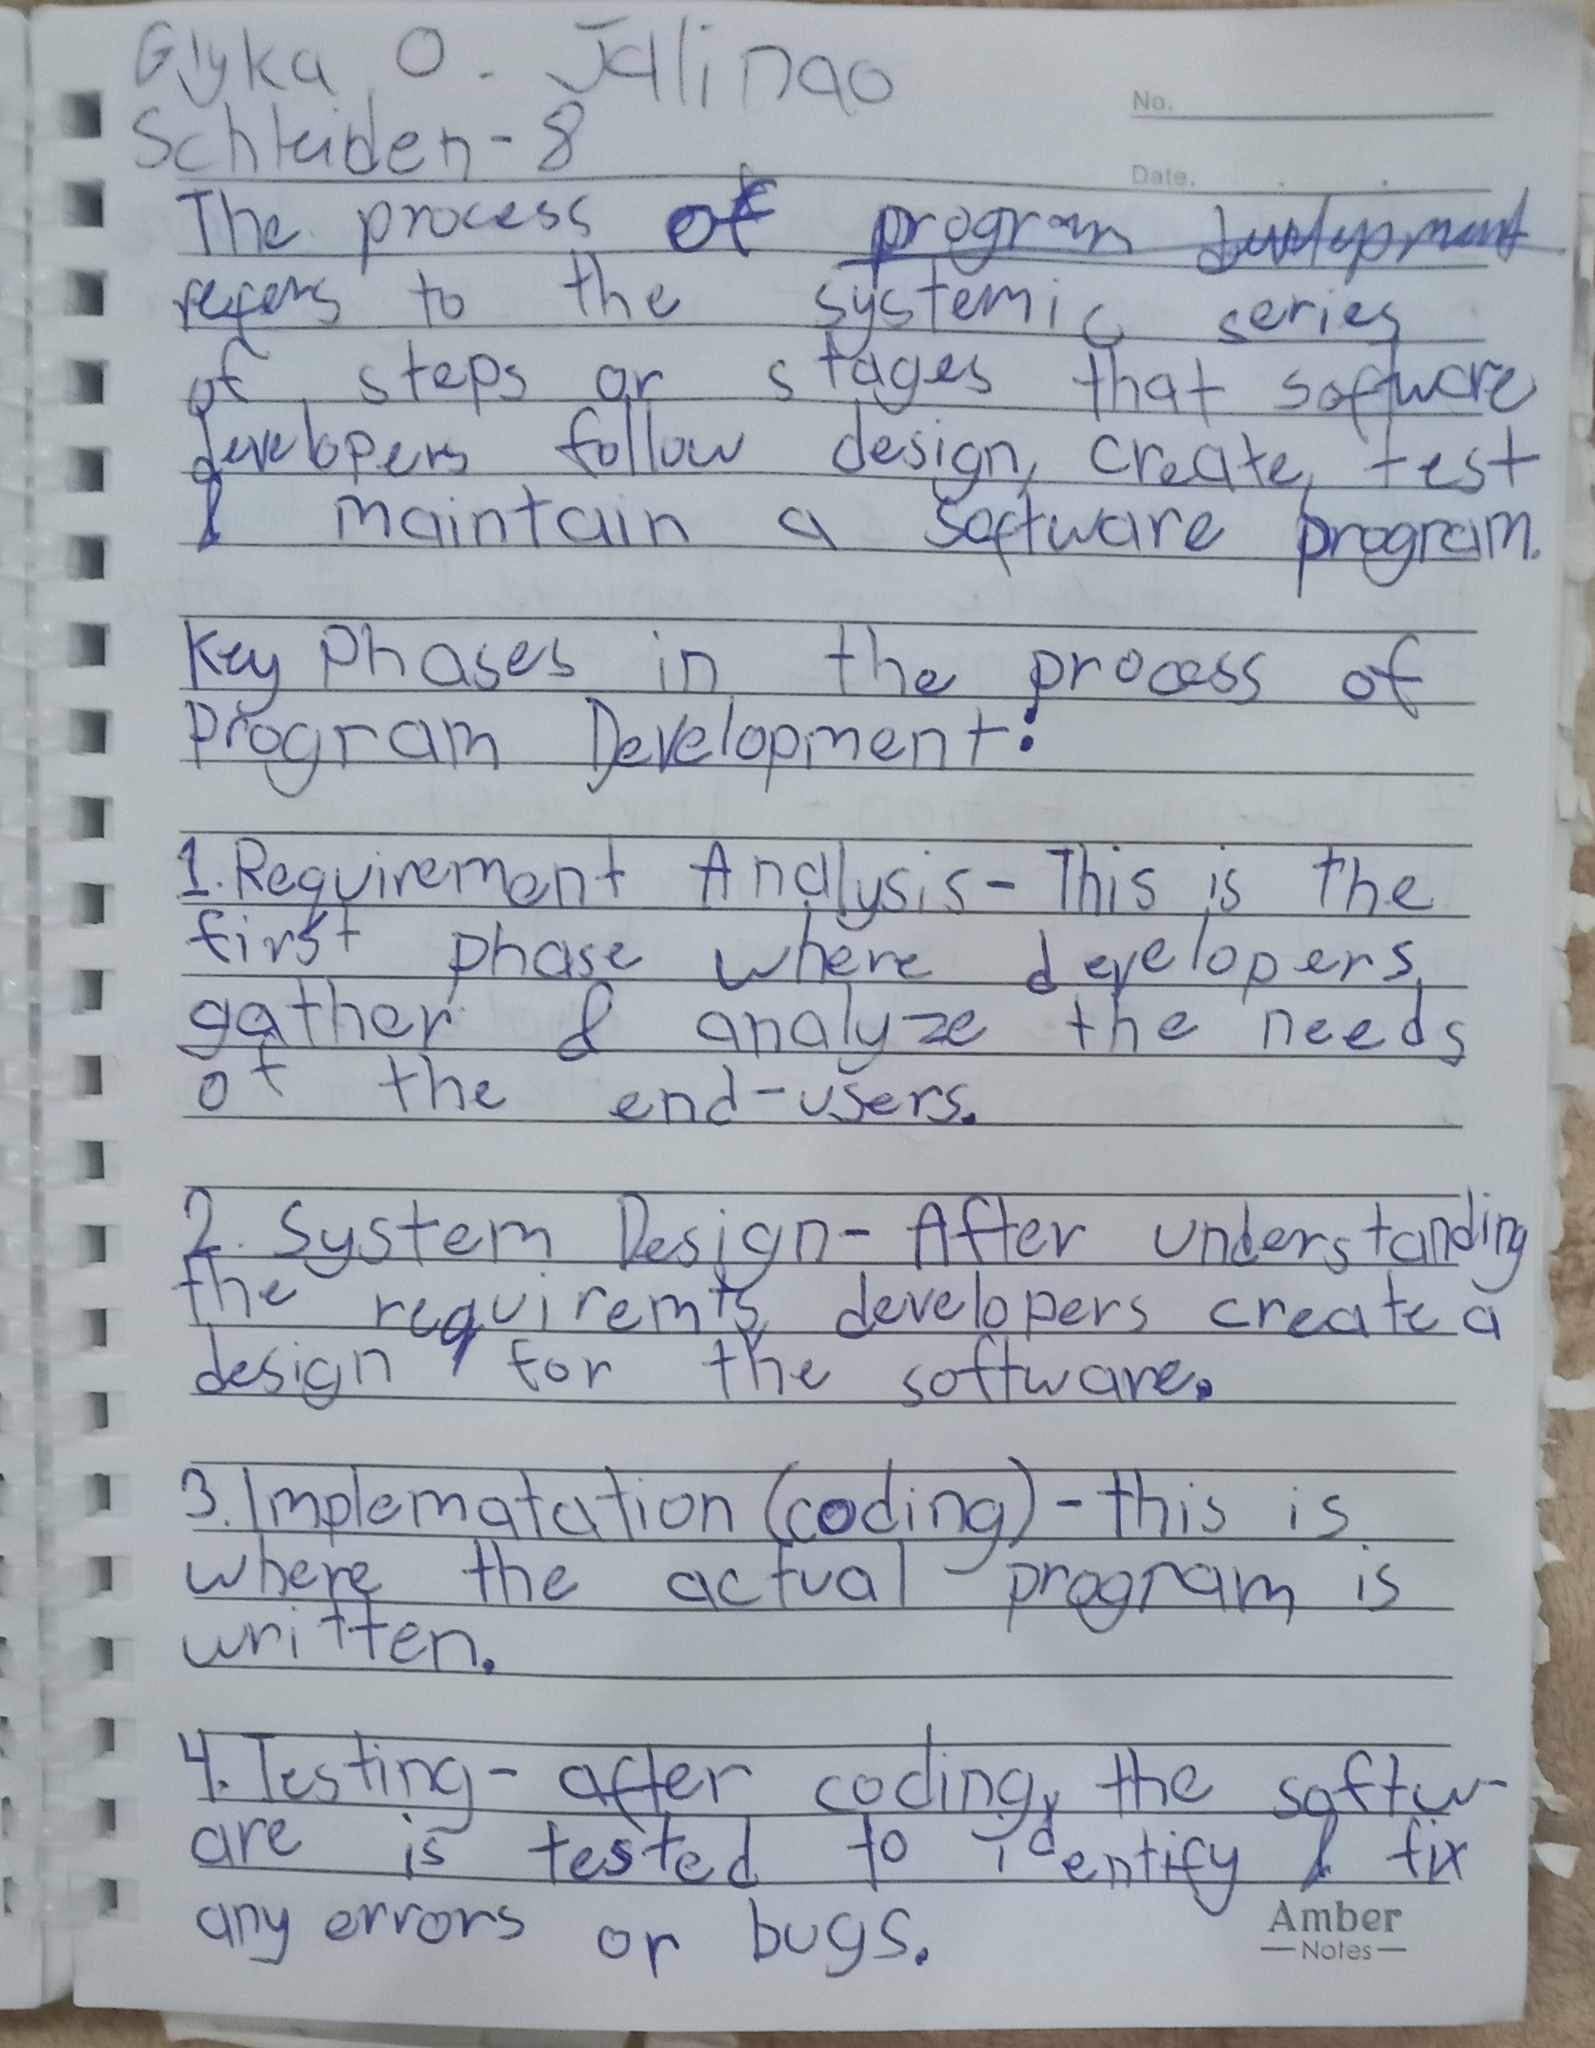 Glyka O. Jalinao
No.
Schleiden-8
Date.
The process of program development
refers to the systemic series
of steps or stages that software
developers follow design, create, test
& maintain a software program.
Key Phases in the process of
Program Development:
1. Requirement Analysis - This is the
first phase where developers
gather & analyze the needs
of the end-users.
2. System Design - After understanding
the requiremts, developers create a
design for the software.
3. Implematation (coding) - this is
where the actual program is
written.
4. Testing - after coding, the softw-
are is tested to identify & fix
any errors or bugs.
Amber
Notes